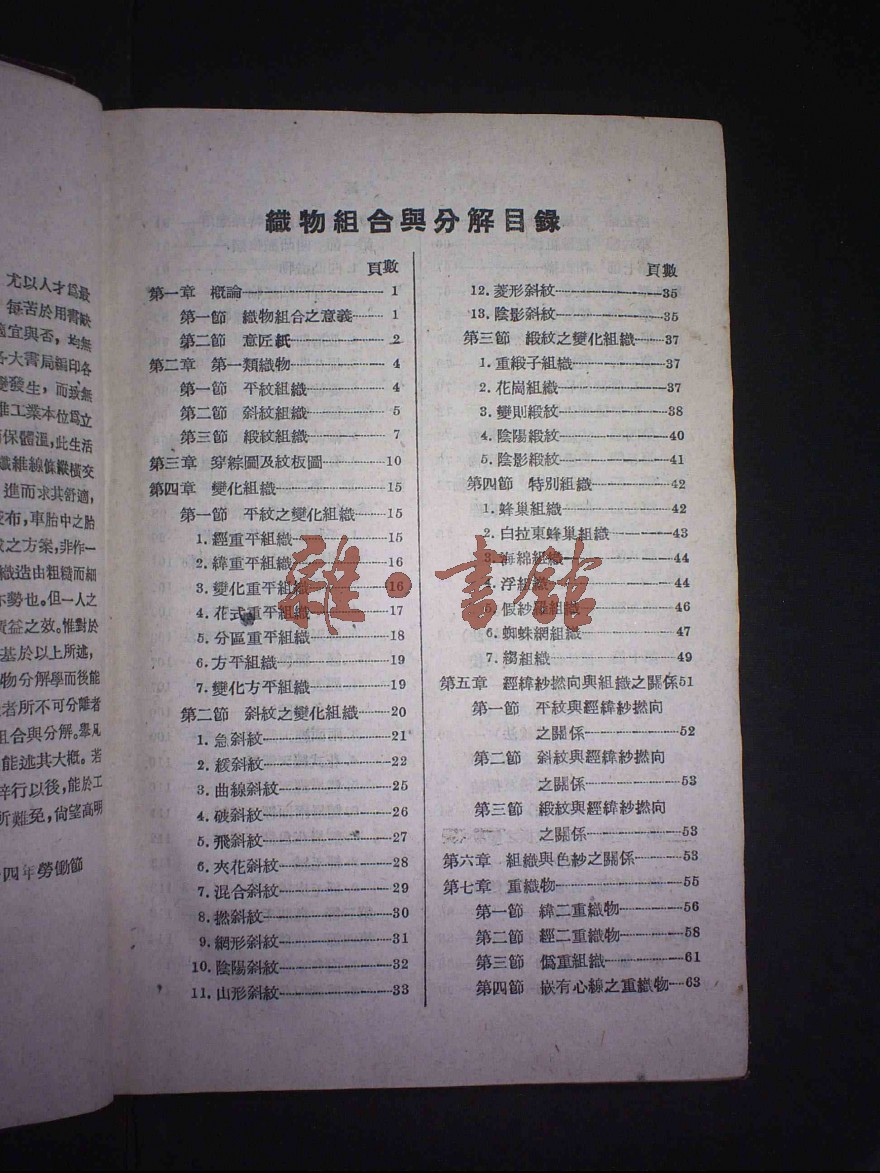 尤以人才爲最
每苦於用書缺
適宜與否，均無
各大書局編印各
變發生，而致無
準工業本位爲立
而保體溫，此生活
纖維線條縱橫交
進而求其舒適，
麥布，車胎中之胎
成之方案，非作一
織造由粗糙而細
亦勢也。但一人之
實益之效。惟對於
基於以上所述，
物分解學而後能
者所不可分離者
組合與分解。舉凡
能述其大概。若
梓行以後，能於工
所難免，尙望高明
四年勞働節
織物組合與分解目錄
頁數
第一章 概論 1
第一節 織物組合之意義 1
第二節 意匠紙 2
第二章 第一類織物 4
第一節 平紋組織 4
第二節 斜紋組織 5
第三節 緞紋組織 7
第三章 穿綜圖及紋板圖 10
第四章 變化組織 15
第一節 平紋之變化組織 15
1. 經重平組織 15
2. 緯重平組織 16
3. 變化重平組織 16
4. 花式重平組織 17
5. 分區重平組織 18
6. 方平組織 19
7. 變化方平組織 19
第二節 斜紋之變化組織 20
1. 急斜紋 21
2. 緩斜紋 22
3. 曲線斜紋 25
4. 破斜紋 26
5. 飛斜紋 27
6. 夾花斜紋 28
7. 混合斜紋 29
8. 撚斜紋 30
9. 網形斜紋 31
10. 陰陽斜紋 32
11. 山形斜紋 33
頁數
12. 菱形斜紋 35
13. 陰影斜紋 35
第三節 緞紋之變化組織 37
1. 重緞子組織 37
2. 花崗組織 37
3. 變則緞紋 38
4. 陰陽緞紋 40
5. 陰影緞紋 41
第四節 特別組織 42
1. 蜂巢組織 42
2. 白拉東蜂巢組織 43
3. 海綿組織 44
4. 浮組織 44
5. 假紗羅組織 46
6. 蜘蛛網組織 47
7. 縐組織 49
第五章 經緯紗撚向與組織之關係 51
第一節 平紋與經緯紗撚向
之關係 52
第二節 斜紋與經緯紗撚向
之關係 53
第三節 緞紋與經緯紗撚向
之關係 53
第六章 組織與色紗之關係 53
第七章 重織物 55
第一節 緯二重織物 56
第二節 經二重織物 58
第三節 僞重組織 61
第四節 嵌有心線之重織物 63
雜·書館